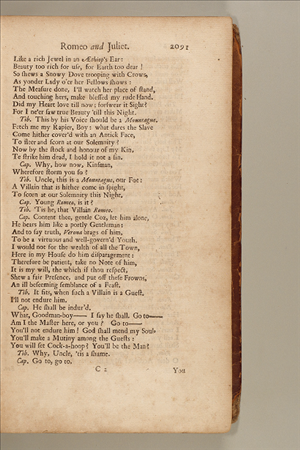 Romeo and Juliet. 2091
Like a rich Jewel in an Æthiop's Ear:
Beauty too rich for use, for Earth too dear!
So shews a Snowy Dove trooping with Crows,
As yonder Lady o'er her Fellows shows:
The Measure done, I'll watch her place of stand,
And touching hers, make blessed my rude Hand.
Did my Heart love till now? forswear it Sight?
For I ne'er saw true Beauty 'till this Night.
Tib. This by his Voice should be a Mountague.
Fetch me my Rapier, Boy: what dares the Slave
Come hither cover'd with an Antick Face,
To fleer and scorn at our Solemnity?
Now by the stock and honour of my Kin,
To strike him dead, I hold it not a sin.
Cap. Why, how now, Kinsman,
Wherefore storm you so?
Tib. Uncle, this is a Mountague, our Foe:
A Villain that is hither come in spight,
To scorn at our Solemnity this Night.
Cap. Young Romeo, is it?
Tib. 'Tis he, that Villain Romeo.
Cap. Content thee, gentle Coz, let him alone,
He bears him like a portly Gentleman:
And to say truth, Verona brags of him,
To be a virtuous and well-govern'd Youth.
I would not for the wealth of all the Town,
Here in my House do him disparagement:
Therefore be patient, take no Note of him,
It is my will, the which if thou respect,
Shew a fair Presence, and put off these Frowns,
An ill beseeming semblance of a Feast.
Tib. It fits, when such a Villain is a Guest,
I'll not endure him.
Cap. He shall be endur'd.
What, Goodman-boy—— I say he shall. Go to——
Am I the Master here, or you? Go to——
You'll not endure him! God shall mend my Soul,
You'll make a Mutiny among the Guests:
You will set Cock-a-hoop? You'll be the Man?
Tib. Why, Uncle, 'tis a shame.
Cap. Go to, go to.
C 2 You